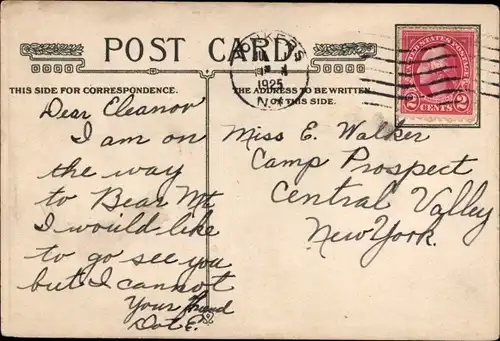 POST CARD
YONKERS
1925
N.Y.
UNITED STATES POSTAGE
2 CENTS 2
THIS SIDE FOR CORRESPONDENCE.
THE ADDRESS TO BE WRITTEN
ON THIS SIDE.
Dear Eleanor
I am on
the way
to Bear Mt
I would like
to go see you
but I cannot
Your friend
Dot E.
Miss E. Walker
Camp Prospect
Central Valley
New York.